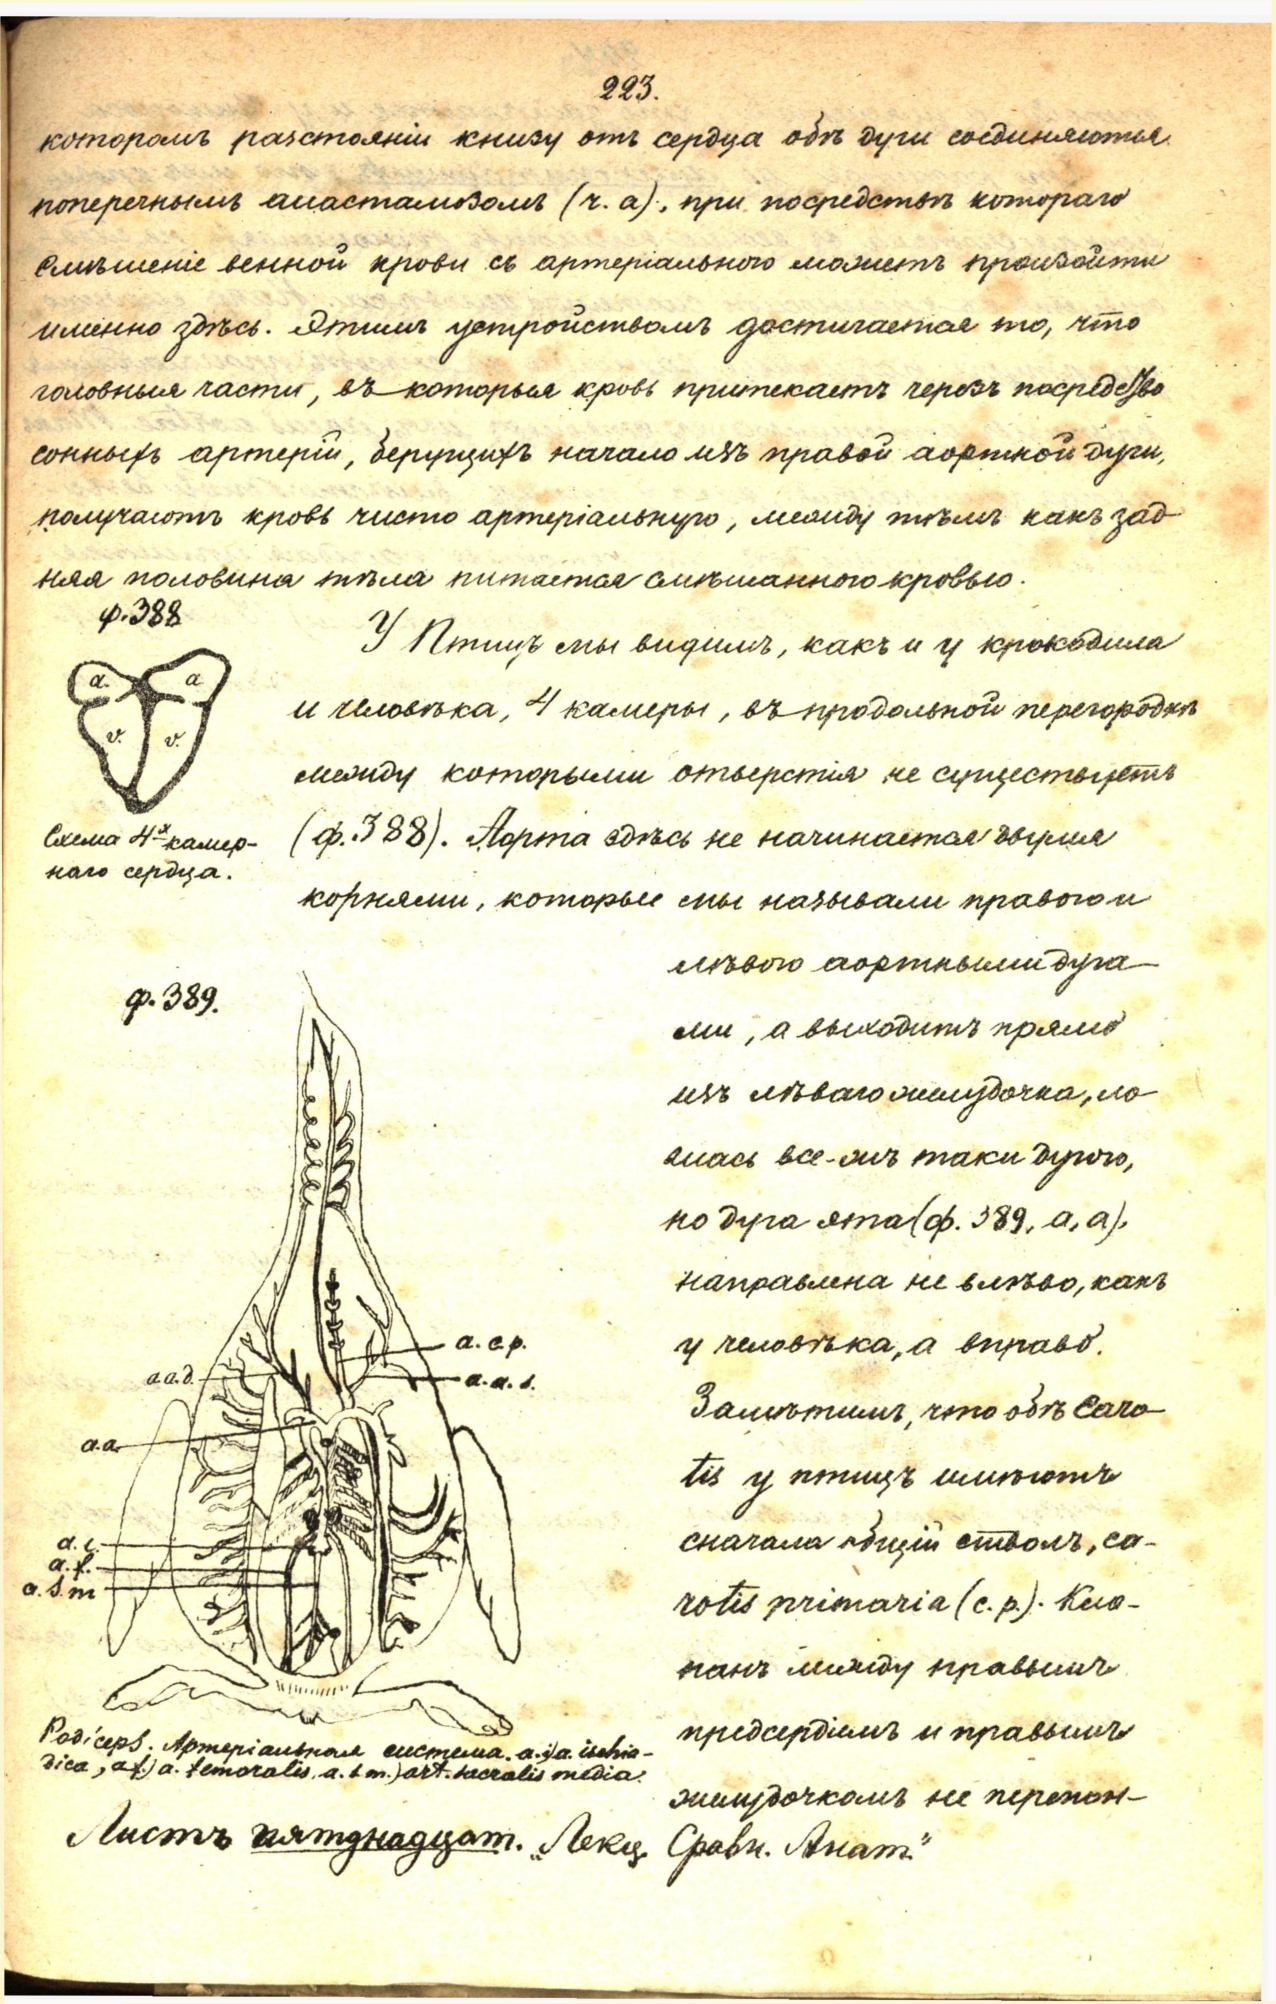 223.
которомъ разстояніи книзу отъ сердца обѣ дуги соединяются
поперечнымъ анастамозомъ (ч. а)., при посредствѣ котораго
смѣшеніе венной крови съ артеріальною можетъ произойти
именно здѣсь. Этимъ устройствомъ достигается то, что
головныя части, въ которыя кровь притекаетъ черезъ посредство
сонныхъ артерій, берущихъ начало изъ правой аортной дуги,
получаютъ кровь чисто артеріальную, между тѣмъ какъ зад-
няя половина тѣла питается смѣшанною кровью.
ф. 388
a. a
v. v.
Схема 4-х камер-
наго сердца.
У Птицъ мы видимъ, какъ и у крокодила
и человѣка, 4 камеры, въ продольной перегородкѣ
между которыми отверстія не существуетъ
(ф. 388). Аорта здѣсь не начинается двумя
корнями, которые мы называли правою и
лѣвою аортными дуга-
ми, а выходитъ прямо
изъ лѣваго желудочка, ло-
жась все-жъ таки дугою,
но дуга эта (ф. 389, а, а).
направлена не влѣво, какъ
у человѣка, а вправо.
Замѣтимъ, что обѣ caro-
tis у птицъ имѣютъ
сначала общій стволъ, ca-
rotis primaria (c. p.). Кла-
панъ между правымъ
предсердіемъ и правымъ
желудочкомъ не перепон-
ф. 389.
a. c. p.
a. a. d.
a. a. s.
a. a.
a. i.
a. f.
a. s. m
Podiceps. Артеріальная система. a. i) a. ischia-
dica, a f) a. femoralis, a. s m.) art. sacralis media.
Листъ пятднадцат. „Лекц. Сравн. Анат."